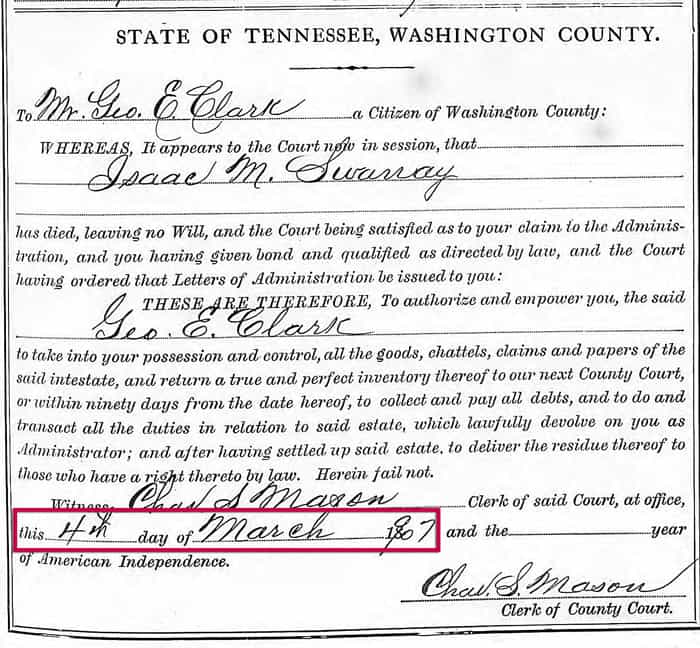 STATE OF TENNESSEE, WASHINGTON COUNTY.
To Mr. Geo. E. Clark a Citizen of Washington County:
WHEREAS, It appears to the Court now in session, that
Isaac M. Swanay
has died, leaving no Will, and the Court being satisfied as to your claim to the Adminis-
tration, and you having given bond and qualified as directed by law, and the Court
having ordered that Letters of Administration be issued to you:
THESE ARE THEREFORE, To authorize and empower you, the said
Geo. E. Clark
to take into your possession and control, all the goods, chattels, claims and papers of the
said intestate, and return a true and perfect inventory thereof to our next County Court,
or within ninety days from the date hereof, to collect and pay all debts, and to do and
transact all the duties in relation to said estate, which lawfully devolve on you as
Administrator; and after having settled up said estate, to deliver the residue thereof to
those who have a right thereto by law. Herein fail not.
Witness, Chas S. Mason Clerk of said Court, at office,
this 4th day of March 1907 and the year
of American Independence.
Chas. S. Mason
Clerk of County Court.